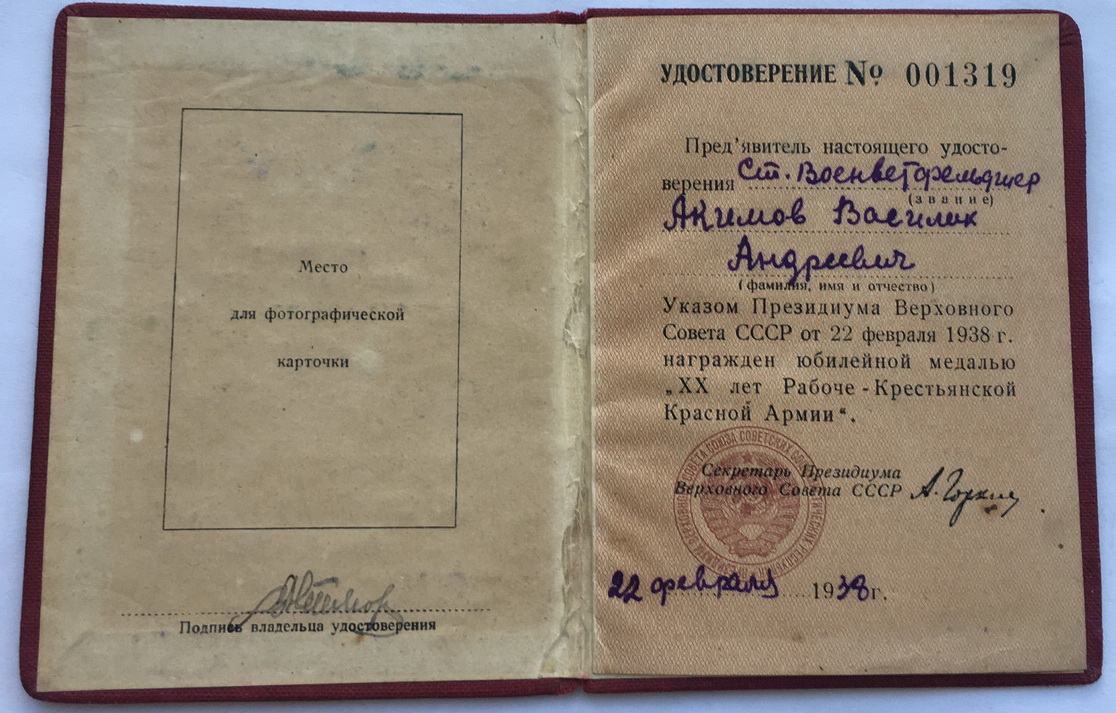 Место
для фотографической
карточки
Подпись владельца удостоверения
УДОСТОВЕРЕНИЕ № 001319
Пред'явитель настоящего удосто-
верения Ст. Военветфельдшер
(звание)
Акимов Василий
Андреевич
(фамилия, имя и отчество)
Указом Президиума Верховного
Совета СССР от 22 февраля 1938 г.
награжден юбилейной медалью
„XX лет Рабоче-Крестьянской
Красной Армии“.
Секретарь Президиума
Верховного Совета СССР А. Горкин
22 февраля 1938 г.